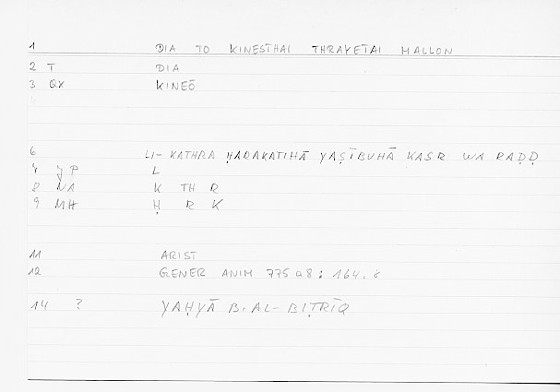 1 DIA TO KINESTHAI THRAYETAI MALLON
2 T DIA
3 QX KINEŌ
6 LI- KATHRA ḤARAKATIHĀ YAṢĪBUHĀ KASR WA RAḌḌ
7 yP L
8 NA K TH R
9 MH Ḥ R K
11 ARIST
12 GENER ANIM 775 a8 : 164.8
14 ? YAḤYĀ B. AL- BIṬRĪQ